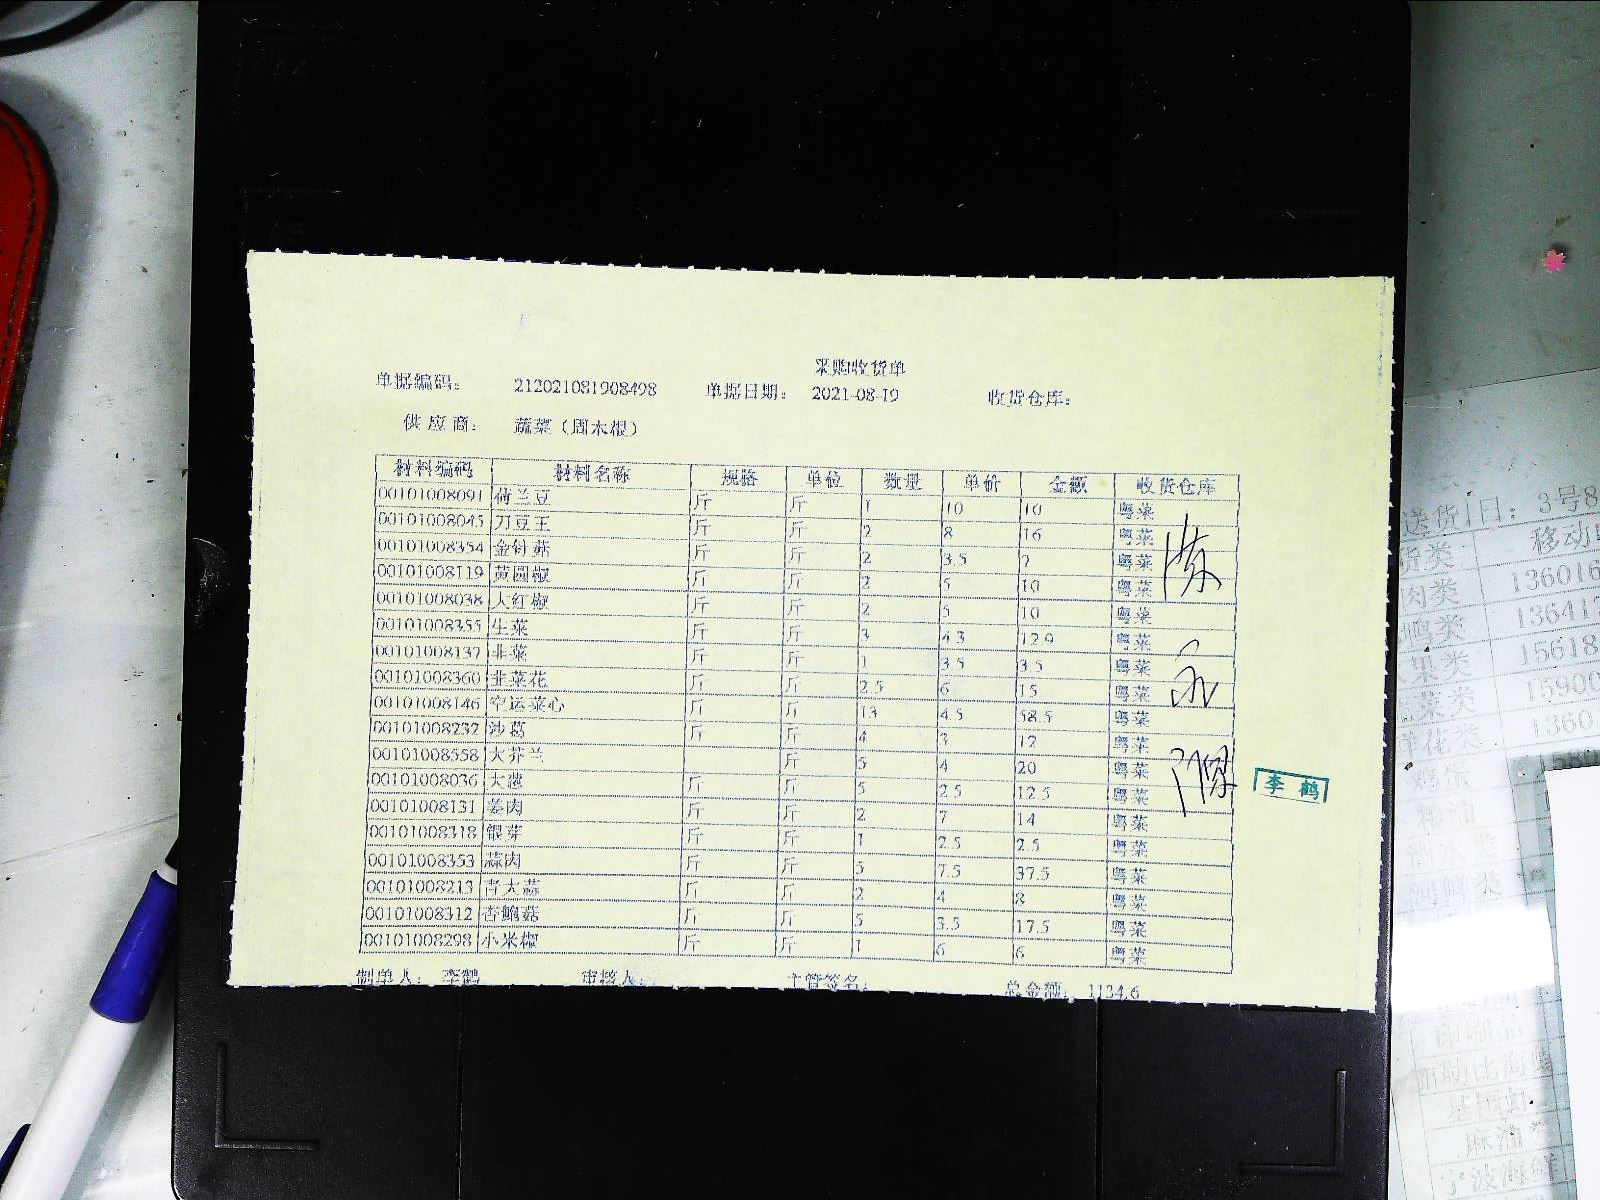 采购收货单
单据编码： 212021081908498 单据日期： 2021-08-19 收货仓库：
供应商： 蔬菜（周木根）
材料编码 材料名称 规格 单位 数量 单价 金额 收货仓库
00101008091 荷兰豆 斤 斤 1 10 10 粤菜
00101008045 刀豆王 斤 斤 2 8 16 粤菜
00101008354 金针菇 斤 斤 2 3.5 7 粤菜
00101008119 黄圆椒 斤 斤 2 5 10 粤菜
00101008038 大红椒 斤 斤 2 5 10 粤菜
00101008355 生菜 斤 斤 3 4.3 12.9 粤菜
00101008137 韭菜 斤 斤 1 3.5 3.5 粤菜
00101008360 韭菜花 斤 斤 2.5 6 15 粤菜
00101008146 空运菜心 斤 斤 13 4.5 58.5 粤菜
00101008232 沙葛 斤 斤 4 3 12 粤菜
00101008558 大芥兰 斤 5 4 20 粤菜
00101008036 大葱 斤 斤 5 2.5 12.5 粤菜
00101008131 姜肉 斤 斤 2 7 14 粤菜
00101008318 银芽 斤 斤 1 2.5 2.5 粤菜
00101008353 蒜肉 斤 斤 5 7.5 37.5 粤菜
00101008213 青大蒜 斤 斤 2 4 8 粤菜
00101008312 杏鲍菇 斤 斤 5 3.5 17.5 粤菜
00101008298 小米椒 斤 斤 1 6 6 粤菜
制单人： 李鹤 审核人： 主管签名： 总金额： 1134.6
李鹤
送货日：3号8
货类 移动
肉类 136016
鸭类 13641
果类 15618
菜类 15900
1360
麻油
宁波海鲜